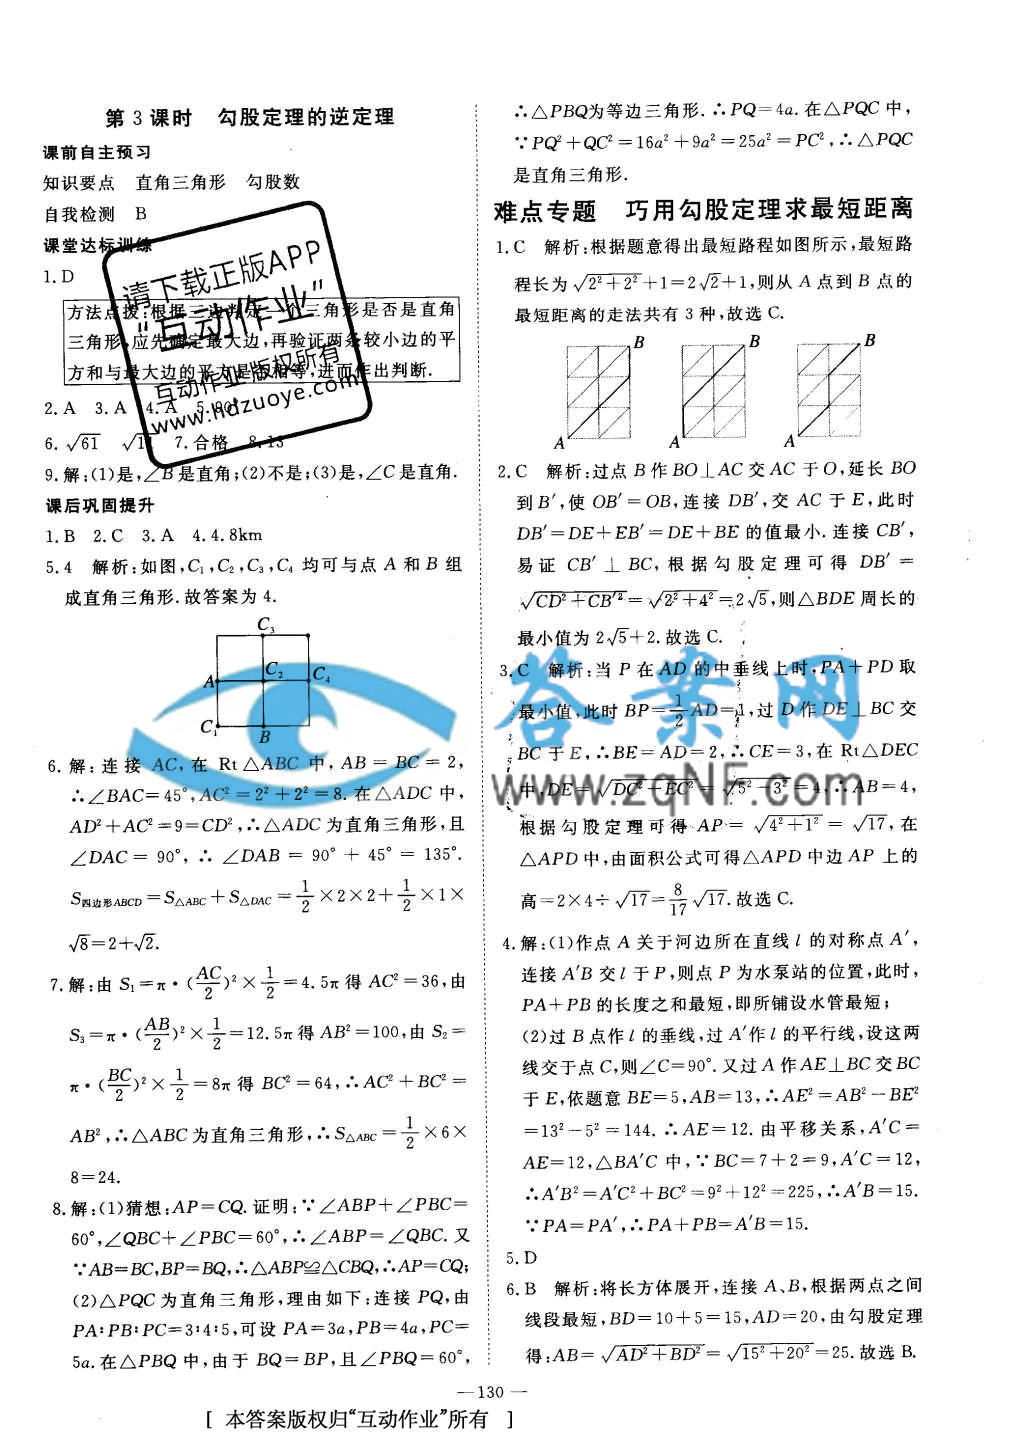 第3课时　勾股定理的逆定理
课前自主预习
知识要点　直角三角形　勾股数
自我检测　B
课堂达标训练
1.D
方法点拨:根据三边判定一个三角形是否是直角
三角形,应先确定最大边,再验证两条较小边的平
方和与最大边的平方是否相等,进而作出判断.
2.A　3.A　4.A　5.90°
6.√61　√11　7.合格　8.13
9.解:(1)是,∠B是直角;(2)不是;(3)是,∠C是直角.
课后巩固提升
1.B　2.C　3.A　4.4.8km
5.4　解析:如图,C₁,C₂,C₃,C₄均可与点A和B组
成直角三角形.故答案为4.
C₃
A
C₂
C₄
C₁
B
6.解:连接AC,在Rt△ABC中,AB=BC=2,
∴∠BAC=45°,AC²=2²+2²=8.在△ADC中,
AD²+AC²=9=CD²,∴△ADC为直角三角形,且
∠DAC=90°,∴∠DAB=90°+45°=135°.
S四边形ABCD=S△ABC+S△DAC=1/2×2×2+1/2×1×
√8=2+√2.
7.解:由S₁=π·(AC/2)²×1/2=4.5π得AC²=36,由
S₃=π·(AB/2)²×1/2=12.5π得AB²=100,由S₂=
π·(BC/2)²×1/2=8π得BC²=64,∴AC²+BC²=
AB²,∴△ABC为直角三角形,∴S△ABC=1/2×6×
8=24.
8.解:(1)猜想:AP=CQ.证明:∵∠ABP+∠PBC=
60°,∠QBC+∠PBC=60°,∴∠ABP=∠QBC.又
∵AB=BC,BP=BQ,∴△ABP≌△CBQ,∴AP=CQ;
(2)△PQC为直角三角形,理由如下:连接PQ,由
PA∶PB∶PC=3∶4∶5,可设PA=3a,PB=4a,PC=
5a.在△PBQ中,由于BQ=BP,且∠PBQ=60°,
∴△PBQ为等边三角形.∴PQ=4a.在△PQC中,
∵PQ²+QC²=16a²+9a²=25a²=PC²,∴△PQC
是直角三角形.
难点专题　巧用勾股定理求最短距离
1.C　解析:根据题意得出最短路程如图所示,最短路
程长为√2²+2²+1=2√2+1,则从A点到B点的
最短距离的走法共有3种,故选C.
B　B　B
A　A　A
2.C　解析:过点B作BO⊥AC交AC于O,延长BO
到B′,使OB′=OB,连接DB′,交AC于E,此时
DB′=DE+EB′=DE+BE的值最小.连接CB′,
易证CB′⊥BC,根据勾股定理可得DB′=
√CD²+CB′²=√2²+4²=2√5,则△BDE周长的
最小值为2√5+2.故选C.
3.C　解析:当P在AD的中垂线上时,PA+PD取
最小值,此时BP=1/2AD=1,过D作DE⊥BC交
BC于E,∴BE=AD=2,∴CE=3,在Rt△DEC
中,DE=√DC²-EC²=√5²-3²=4,∴AB=4,
根据勾股定理可得AP=√4²+1²=√17,在
△APD中,由面积公式可得△APD中边AP上的
高=2×4÷√17=8/17√17.故选C.
4.解:(1)作点A关于河边所在直线l的对称点A′,
连接A′B交l于P,则点P为水泵站的位置,此时,
PA+PB的长度之和最短,即所铺设水管最短;
(2)过B点作l的垂线,过A′作l的平行线,设这两
线交于点C,则∠C=90°.又过A作AE⊥BC交BC
于E,依题意BE=5,AB=13,∴AE²=AB²-BE²
=13²-5²=144.∴AE=12.由平移关系,A′C=
AE=12,△BA′C中,∵BC=7+2=9,A′C=12,
∴A′B²=A′C²+BC²=9²+12²=225,∴A′B=15.
∵PA=PA′,∴PA+PB=A′B=15.
5.D
6.B　解析:将长方体展开,连接A、B,根据两点之间
线段最短,BD=10+5=15,AD=20,由勾股定理
得:AB=√AD²+BD²=√15²+20²=25.故选B.
请下载正版APP
“互动作业”
互动作业·版权所有
www.hdzuoye.com
答案网
www.zqNF.com
—130—
[ 本答案版权归“互动作业”所有 ]